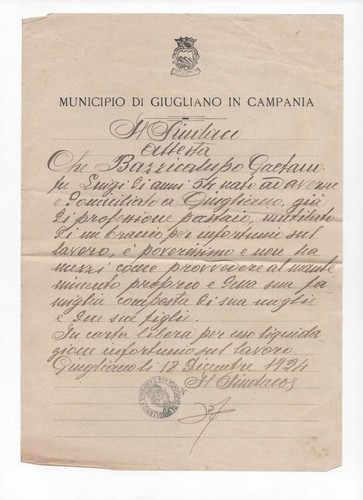 MUNICIPIO DI GIUGLIANO IN CAMPANIA
Il Sindaco
Attesta
Che Bazzicalupo Gaetano
fu Luigi di anni nato ad Aversa
e domiciliato a Giugliano, già
di professione pastaio, mutilato
di un braccio per infortunio sul
lavoro, è poverissimo e non ha
mezzi come provvedere al mante
nimento proprio e della sua fa
miglia composta di sua moglie
e due sue figlie.
In carta libera per uso liquida
zione infortunio sul lavoro.
Giugliano li 12 Dicembre 1924
Il Sindaco